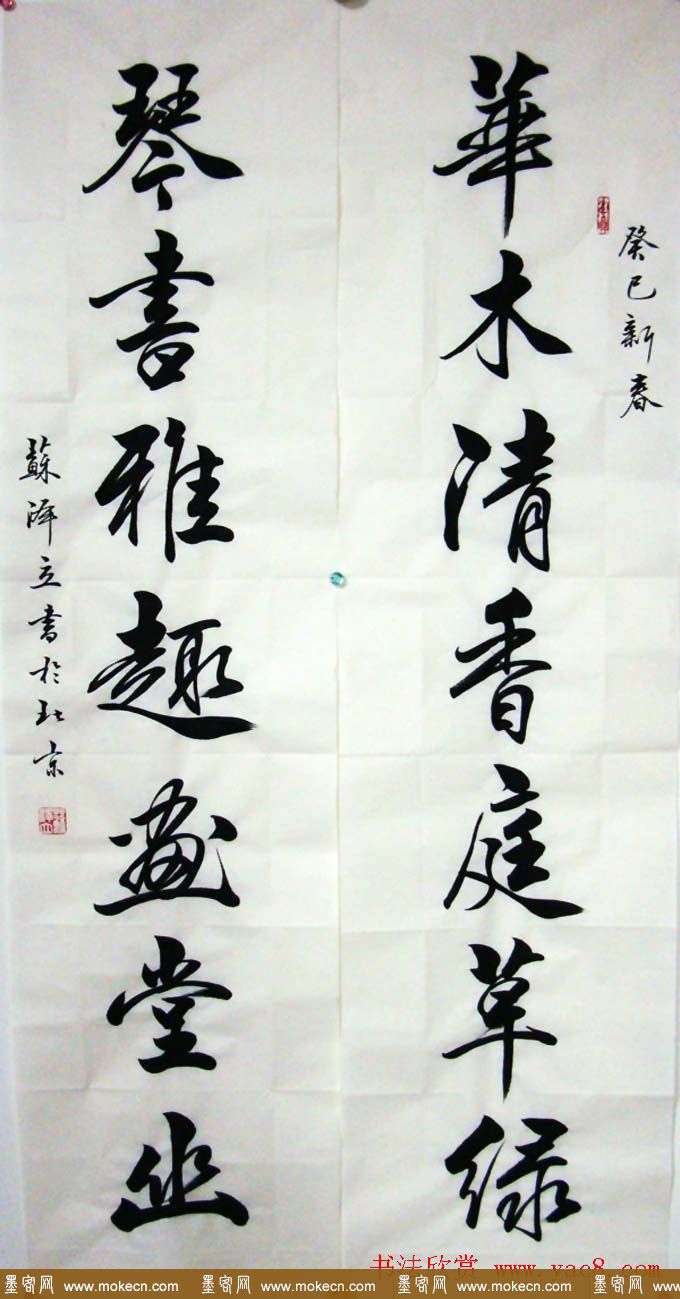 癸巳新春
華木清香庭草緑
琴書雅趣畫堂幽
蘇澤立書於北京
书法欣赏 www.yac8.com
墨客网 www.mokecn.com 墨客网 www.mokecn.com 墨客网 www.mokecn.com 墨客网 www